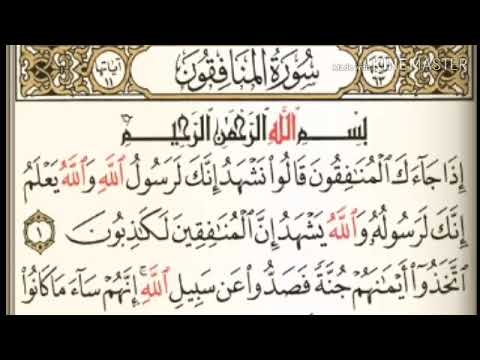 سُورَةُ المُنَافِقُونَ
آيَاتُهَا
١١
٦٣
بِسْمِ ٱللَّهِ ٱلرَّحْمَٰنِ ٱلرَّحِيمِ
إِذَا جَآءَكَ ٱلْمُنَٰفِقُونَ قَالُوا۟ نَشْهَدُ إِنَّكَ لَرَسُولُ ٱللَّهِ وَٱللَّهُ يَعْلَمُ
إِنَّكَ لَرَسُولُهُۥ وَٱللَّهُ يَشْهَدُ إِنَّ ٱلْمُنَٰفِقِينَ لَكَٰذِبُونَ ١
ٱتَّخَذُوٓا۟ أَيْمَٰنَهُمْ جُنَّةً فَصَدُّوا۟ عَن سَبِيلِ ٱللَّهِ ۚ إِنَّهُمْ سَآءَ مَا كَانُوا۟